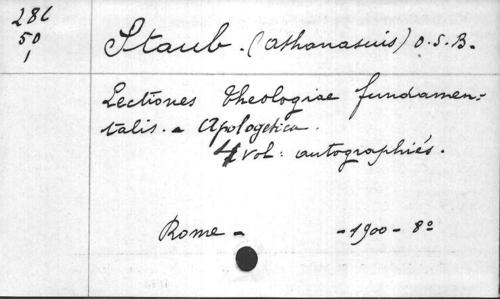 286
50
1
Staub. (Athanasius) O.S.B.
Lectiones theologiae fundamen-
talis. - Apologetica.
4 vol: autographiés.
Rome - - 1900 - 8°